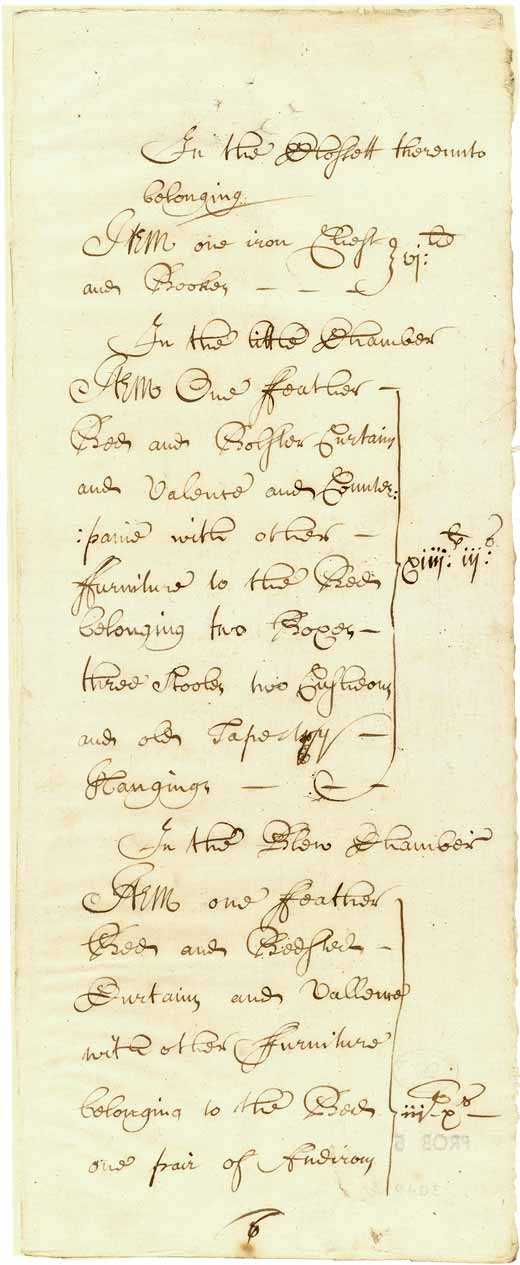 In the Clossett thereunto
belonging
Item one iron Chest
and Bookes - - - vj: li
In the little Chamber
Item One ffeather -
Bed and Bolster Curtains
and Valence and Counter:
:paine with other -
ffurniture to the Bed
belonging two Boxes -
three Stooles two Cusheons
and old Tapestry -
Hangings - xiiij: li iij: s
In the Blew Chamber
Item one ffeather
Bed and Bedsted -
Curtains and Vallence
with other ffurniture
belonging to the Bed iij li x s -
one pair of Andirons
6
PROB 5